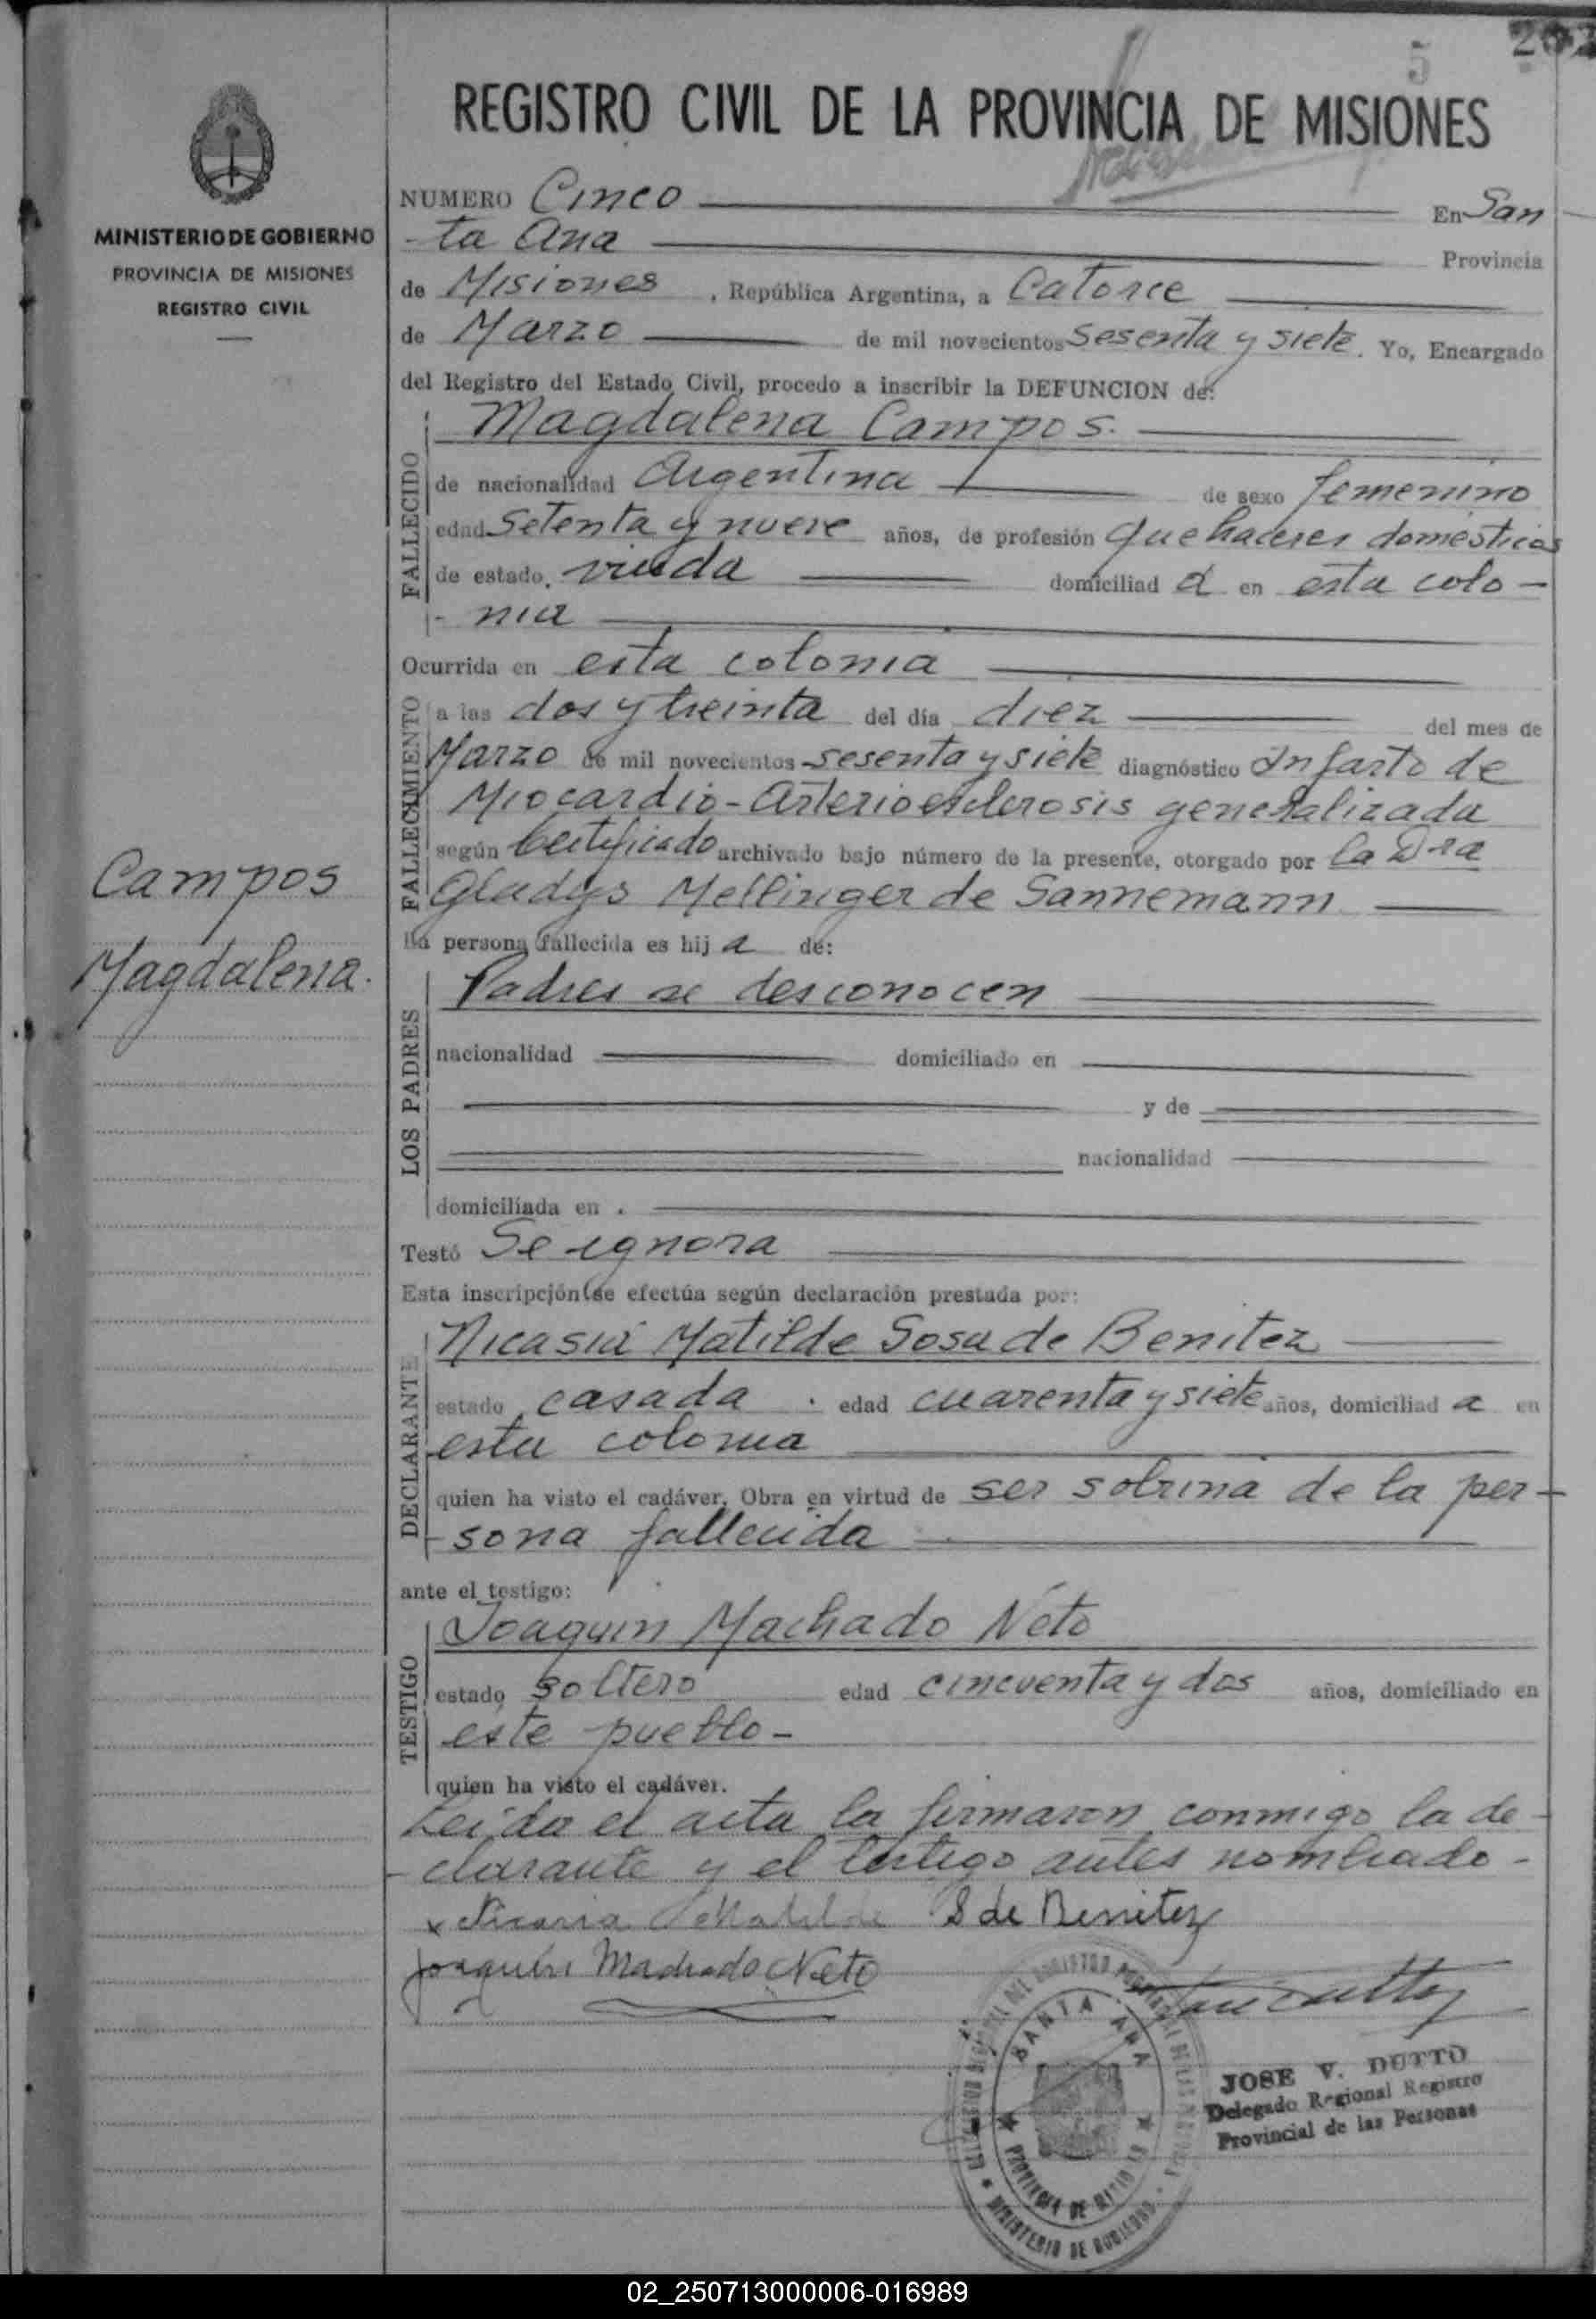 5
REGISTRO CIVIL DE LA PROVINCIA DE MISIONES
MINISTERIO DE GOBIERNO
PROVINCIA DE MISIONES
REGISTRO CIVIL
NUMERO Cinco En San
-ta Ana Provincia
de Misiones, República Argentina, a Catorce
de Marzo de mil novecientos Sesenta y siete. Yo, Encargado
del Registro del Estado Civil, procedo a inscribir la DEFUNCION de:
FALLECIDO
Magdalena Campos.
de nacionalidad Argentina de sexo femenino
edad Setenta y nueve años, de profesión quehaceres domésticos
de estado. viuda domiciliad a en esta colo-
-nia
Ocurrida en esta colonia
FALLECIMIENTO
a las dos y treinta del día diez del mes de
Marzo de mil novecientos sesenta y siete diagnóstico Infarto de
Miocardio-Arterioesclerosis generalizada
según Certificado archivado bajo número de la presente, otorgado por la Dra
Gladys Mellinger de Sannemann
Campos
Magdalena.
La persona fallecida es hij a de:
LOS PADRES
Padres se desconocen
nacionalidad domiciliado en
y de
nacionalidad
domiciliada en .
Testó Se ignora
Esta inscripción se efectúa según declaración prestada por:
DECLARANTE
Nicasia Matilde Sosa de Benitez
estado casada. edad cuarenta y siete años, domiciliad a en
esta colonia
quien ha visto el cadáver. Obra en virtud de ser sobrina de la per-
-sona fallecida
ante el testigo:
TESTIGO
Joaquin Machado Neto
estado soltero edad cincuenta y dos años, domiciliado en
este pueblo-
quien ha visto el cadáver.
Leida el acta la firmaron conmigo la de-
-clarante y el testigo antes nombrado-
x Nicasia Matilde S de Benitez
Joaquin Machado Neto
SANTA ANA
PROVINCIA DE MISIONES
MINISTERIO DE GOBIERNO
JOSE V. DUTTO
Delegado Regional Registro
Provincial de las Personas
02_250713000006-016989